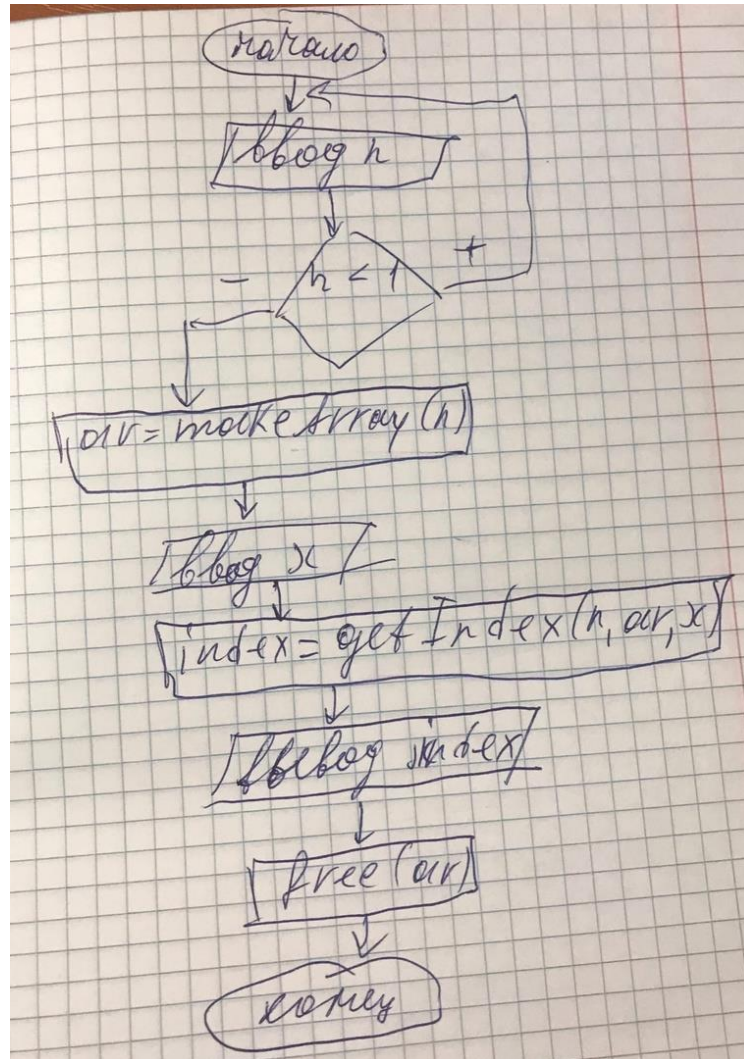 начало
ввод n
n < 1
+
-
ar = makeArray(n)
ввод x
index = getIndex(n, ar, x)
вывод index
free(ar)
конец